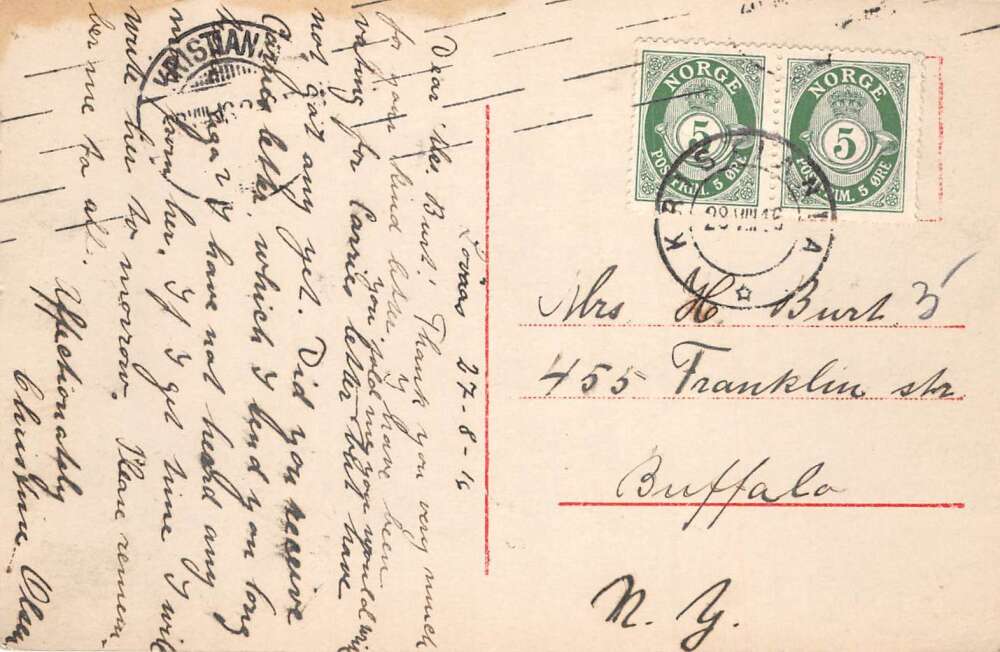 Lövaas 27-8-16
Dear Mrs. Burt! Thank you very much
for your kind letter. I have been
you told me you would
waiting for Carries letter but have
not gat any yet. Did you receive
Carries letter, which I send you long
ago? I have not heard any
from her. If I get time I will
write her to morrow. Please remem
ber me to all.
Affectionately
Christine Olsen
KRISTIANIA
NORGE
5
POSTFRIM. 5 ØRE
NORGE
5
POSTFRIM. 5 ØRE
KRISTIANIA
Mrs H. Burt
455 Franklin str.
Buffalo
N. Y.